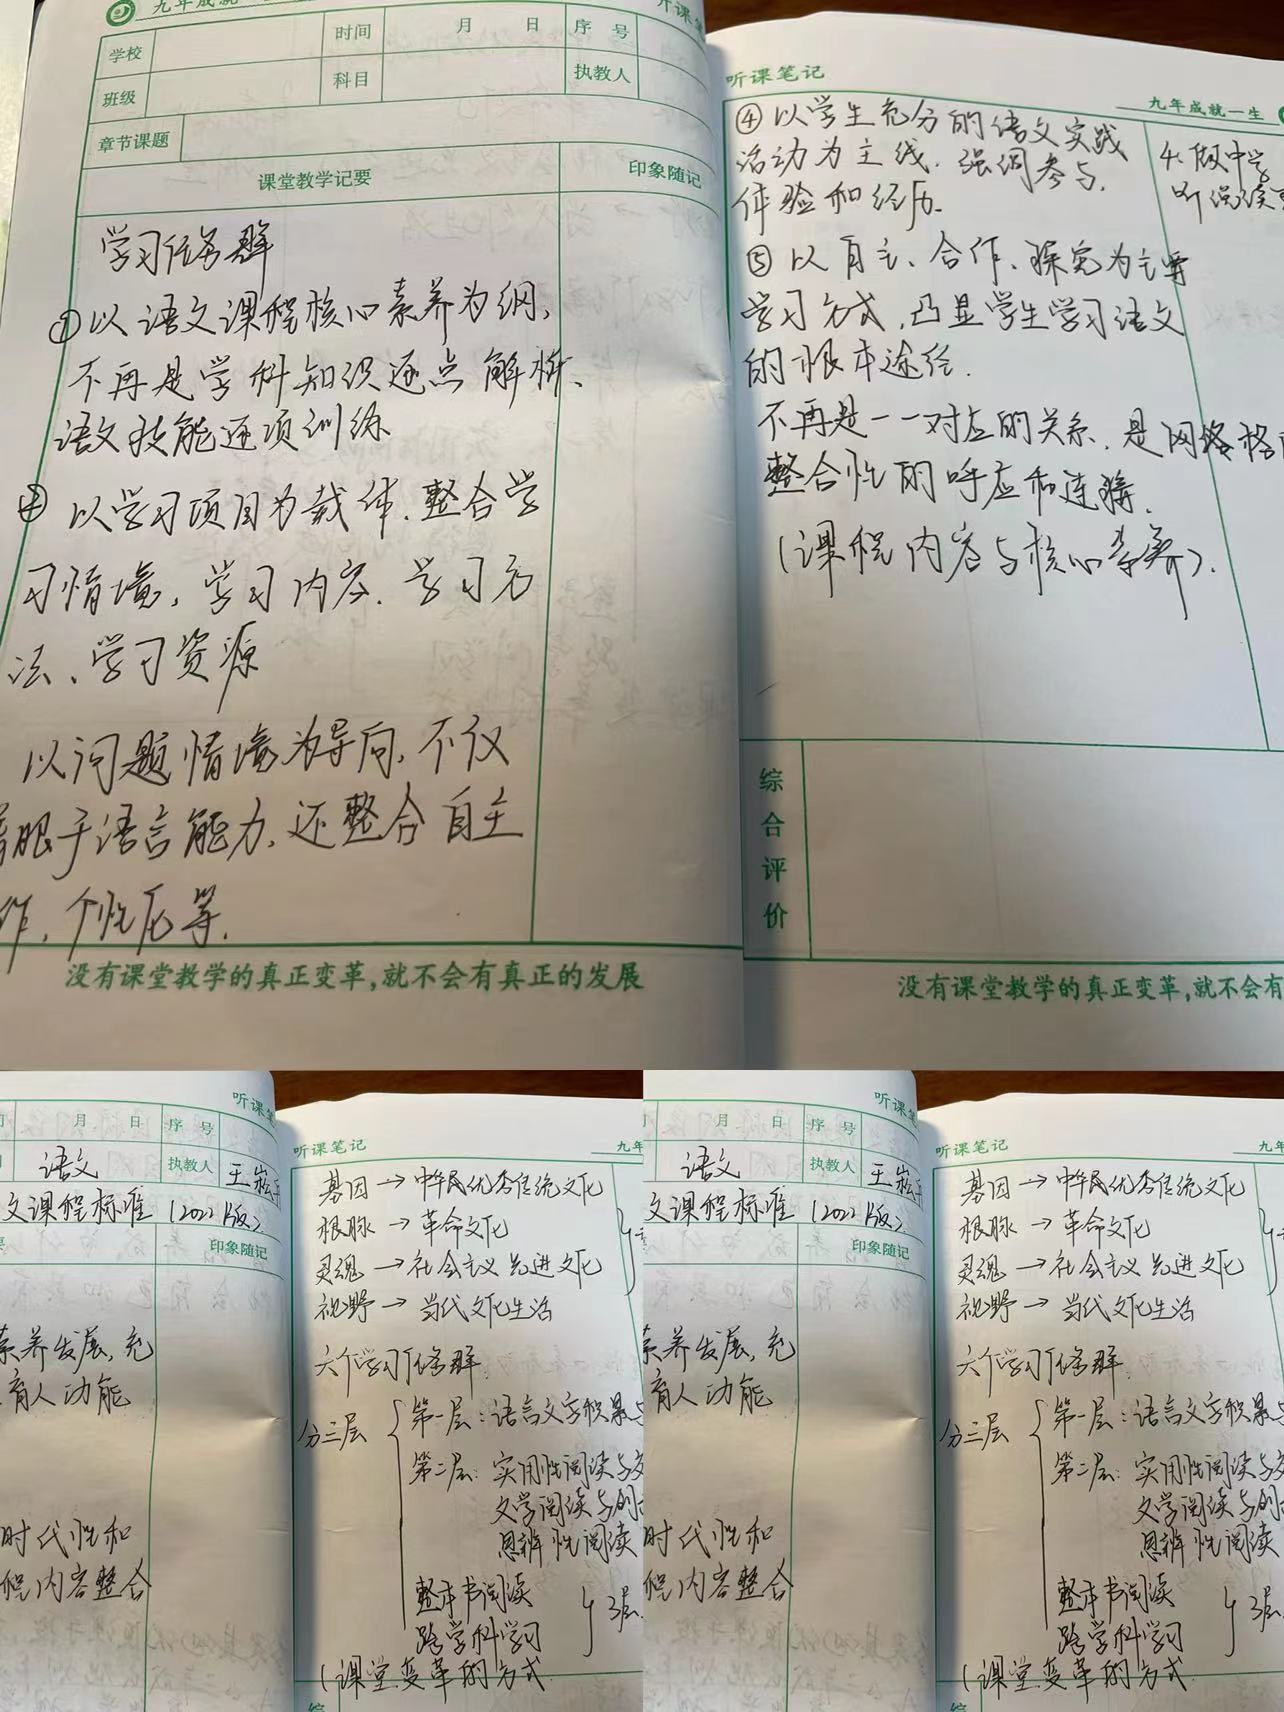 九年成就一
听课笔
学校
时间
月 日
序 号
班级
科目
执教人
章节课题
课堂教学记要
印象随记
学习任务群
①以语文课程核心素养为纲,
不再是学科知识逐点解析、
语文技能逐项训练
② 以学习项目为载体,整合学
习情境,学习内容,学习方
法、学习资源
以问题情境为导向,不仅
着眼于语言能力,还整合自主
作,个性化等.
没有课堂教学的真正变革,就不会有真正的发展
听课笔记
九年成就一生
④以学生充分的语文实践
活动为主线,强调参与,
体验和经历.
4.做中学
听说读
⑤以自主、合作、探究为主导
学习方式,凸显学生学习语文
的根本途径.
不再是一一对应的关系,是网络格
整合性的呼应和连接,
(课程内容与核心素养).
综合评价
没有课堂教学的真正变革,就不会有
听课笔
月 日
序 号
语文
执教人
王崧
文课程标准(2022版)
印象随记
素养发展,充
育人功能
时代性和
程内容整合
听课笔记
九年
基因→中华民优秀传统文化
根脉→革命文化
灵魂→社会主义先进文化
视野→当代文化生活
六个学习任务群
分三层
第一层:语言文字积累与
第二层:实用性阅读与交
文学阅读与创
思辨性阅读
整本书阅读
跨学科学习
3层
(课堂变革的方式
综
听课笔
月 日
序 号
语文
执教人
王崧
文课程标准(2022版)
印象随记
素养发展,充
育人功能
时代性和
程内容整合
听课笔记
九年
基因→中华民优秀传统文化
根脉→革命文化
灵魂→社会主义先进文化
视野→当代文化生活
六个学习任务群
分三层
第一层:语言文字积累与
第二层:实用性阅读与交
文学阅读与创
思辨性阅读
整本书阅读
跨学科学习
3层
(课堂变革的方式
综